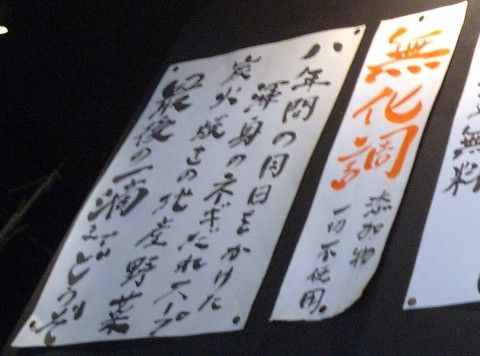 無料
無化調
添加物
一切不使用。
八年間の月日をかけた
渾身のネギだれスープ
炭火焼きの地産野菜
最後の一滴までどうぞ